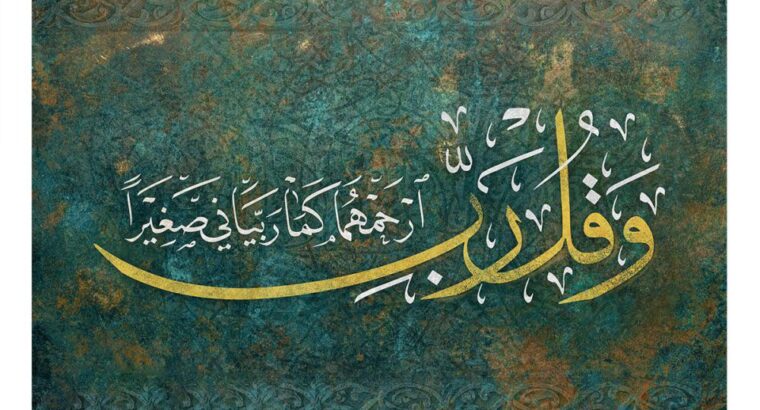 وَقُل رَّبِّ ٱرْحَمْهُمَا كَمَا رَبَّيَانِي صَغِيرًا